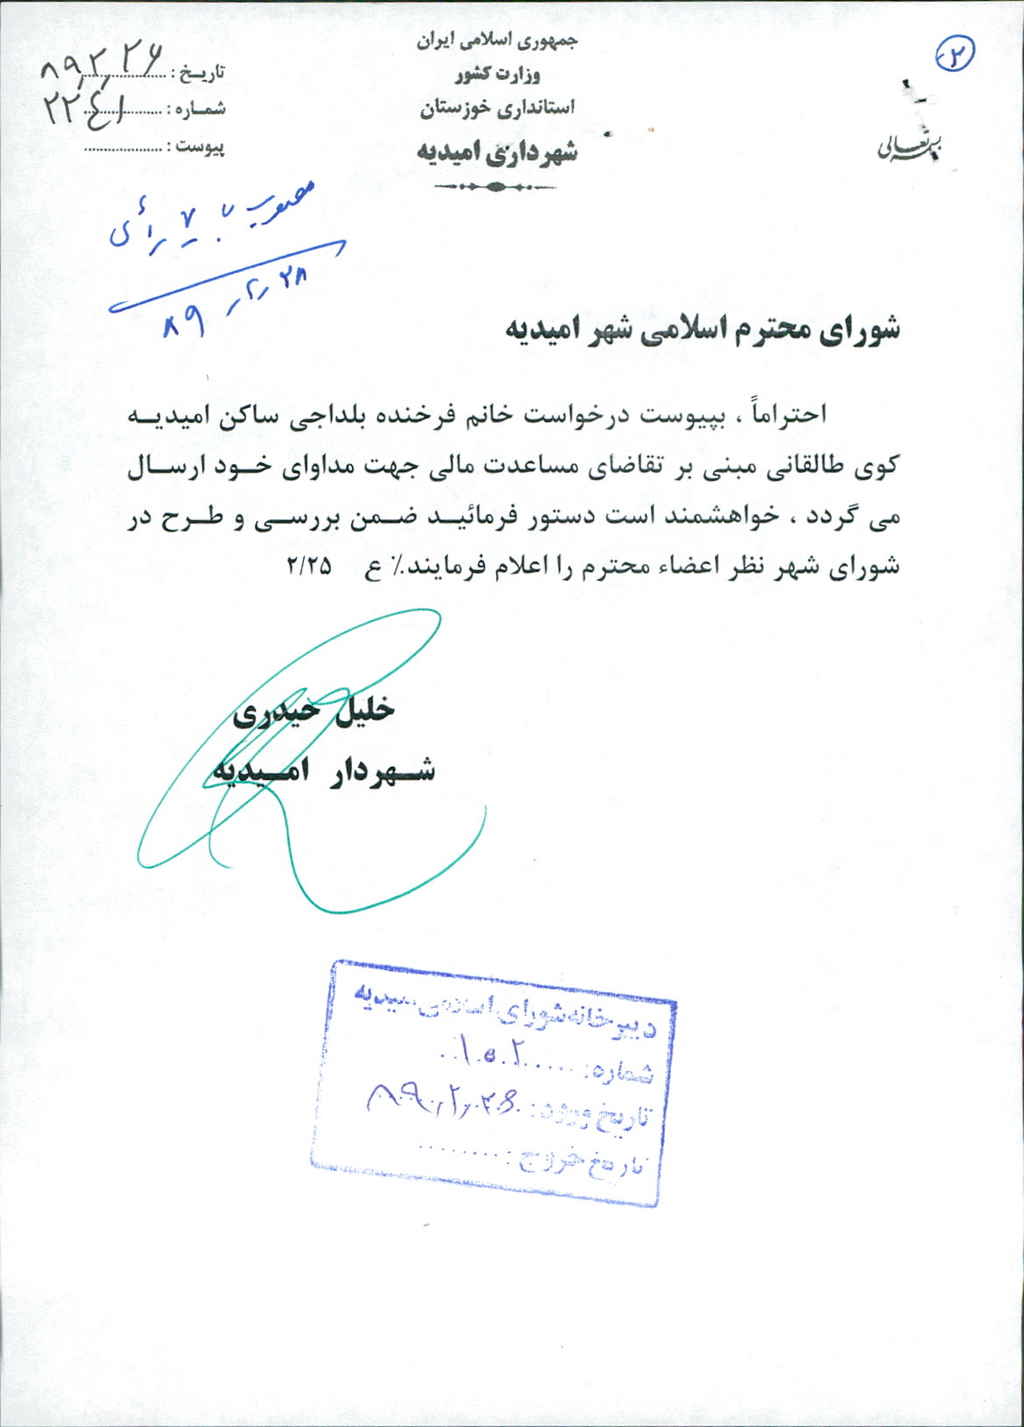 ۲
بسمه تعالی
جمهوری اسلامی ایران
وزارت کشور
استانداری خوزستان
شهرداری امیدیه
تاریخ : ۸۹,۲,۲۶
شماره : ۲۲۴۱
پیوست :
مصوب با ۷ رأی
۸۹,۲,۲۸
شورای محترم اسلامی شهر امیدیه
احتراماً ، بپیوست درخواست خانم فرخنده بلداجی ساکن امیدیـه
کوی طالقانی مبنی بر تقاضای مساعدت مالی جهت مداوای خـود ارسـال
می گردد ، خواهشمند است دستور فرمائیـد ضـمن بررسـی و طـرح در
شورای شهر نظر اعضاء محترم را اعلام فرمایند٪ ع ۲/۲۵
خلیل حیدری
شـهردار امـیدیه
دبیرخانه شورای اسلامی امیدیه
شماره: ۱۵۲
تاریخ ورود: ۸۹,۲,۲۶
تاریخ خروج: